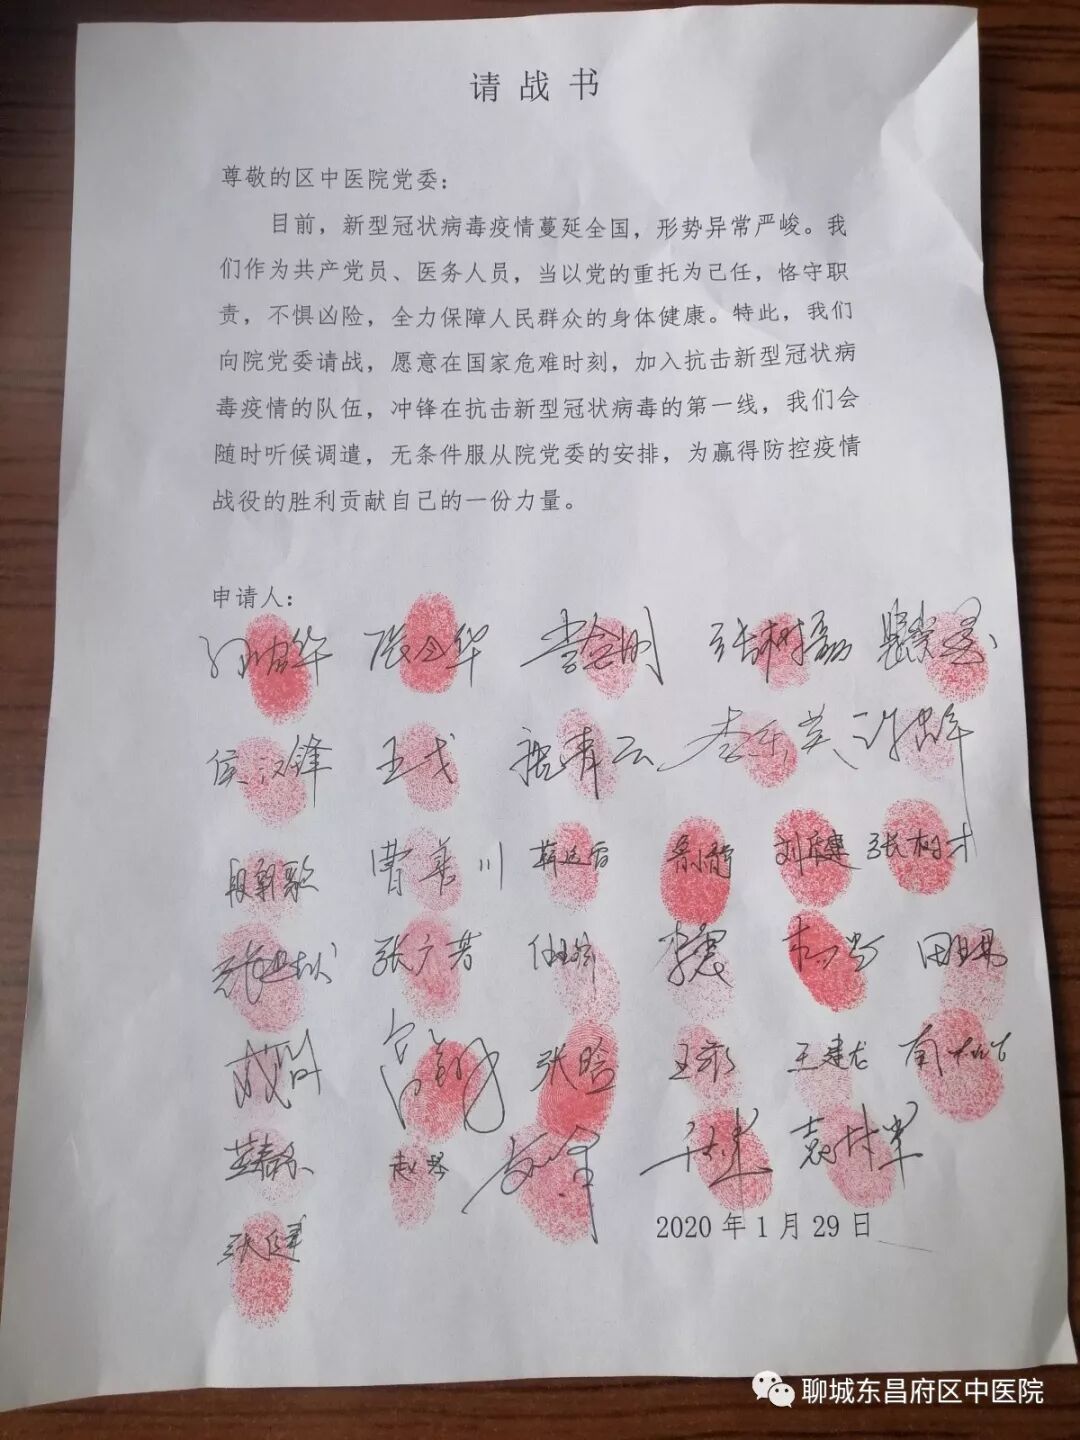 请战书
尊敬的区中医院党委：
目前，新型冠状病毒疫情蔓延全国，形势异常严峻。我
们作为共产党员、医务人员，当以党的重托为己任，恪守职
责，不惧凶险，全力保障人民群众的身体健康。特此，我们
向院党委请战，愿意在国家危难时刻，加入抗击新型冠状病
毒疫情的队伍，冲锋在抗击新型冠状病毒的第一线，我们会
随时听候调遣，无条件服从院党委的安排，为赢得防控疫情
战役的胜利贡献自己的一份力量。
申请人：
张树磊
侯汉锋 王戈 魏青云
曹善川 张树才
张广芳
张晗 王建龙
赵琴
2020年1月29日
张健
聊城东昌府区中医院